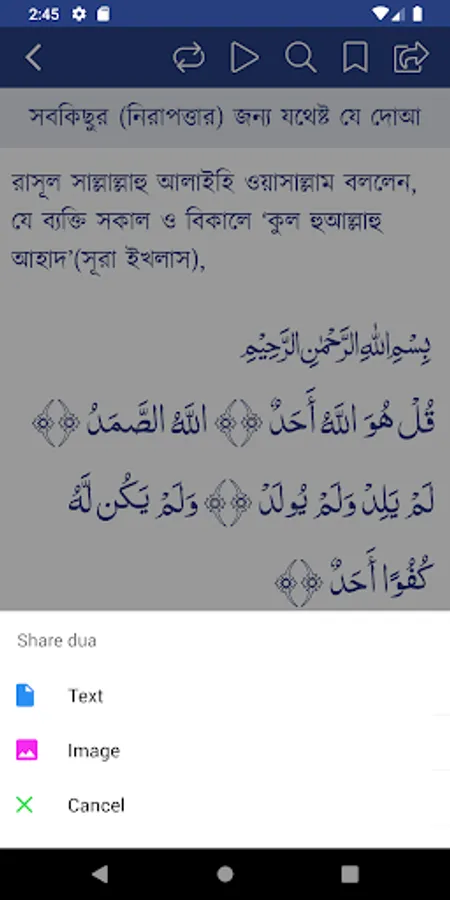 2:45
সবকিছুর (নিরাপত্তার) জন্য যথেষ্ট যে দোআ
রাসূল সাল্লাল্লাহু আলাইহি ওয়াসাল্লাম বললেন,
যে ব্যক্তি সকাল ও বিকালে ‘কুল হুআল্লাহু
আহাদ’(সূরা ইখলাস),
بِسْمِ اللهِ الرَّحْمٰنِ الرَّحِيْمِ
قُلْ هُوَ اللَّهُ أَحَدٌ ﴿﴾ اللَّهُ الصَّمَدُ ﴿﴾
لَمْ يَلِدْ وَلَمْ يُولَدْ ﴿﴾ وَلَمْ يَكُن لَّهُ
كُفُوًا أَحَدٌ ﴿﴾
Share dua
Text
Image
Cancel